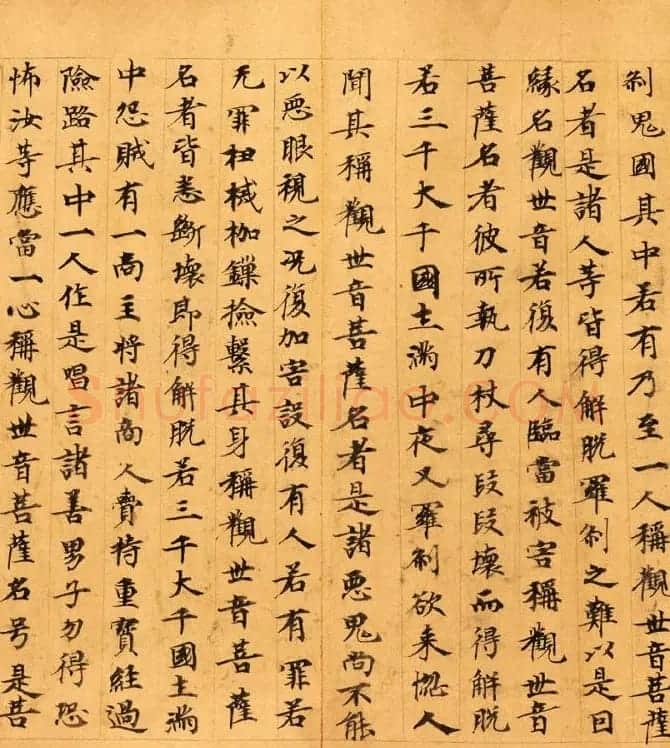 刹鬼國其中若有乃至一人稱觀世音菩薩
名者是諸人等皆得解脫羅刹之難以是因
緣名觀世音若復有人臨當被害稱觀世音
菩薩名者彼所執刀杖尋段段壞而得解脫
若三千大千國土滿中夜叉羅刹欲来惱人
聞其稱觀世音菩薩名者是諸惡鬼尚不能
以惡眼視之况復加害設復有人若有罪若
无罪杻械枷鏁撿繫其身稱觀世音菩薩
名者皆悉斷壞即得解脫若三千大千國土滿
中怨賊有一商主將諸商人賷持重寶經過
險路其中一人作是唱言諸善男子勿得恐
怖汝等應當一心稱觀世音菩薩名号是菩
Shufaziliao.COM